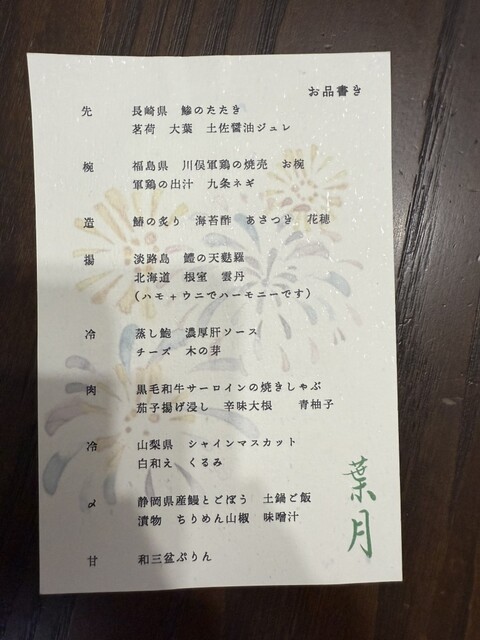 お品書き
先 長崎県 鰺のたたき
茗荷 大葉 土佐醤油ジュレ
椀 福島県 川俣軍鶏の焼売 お椀
軍鶏の出汁 九条ネギ
造 鰆の炙り 海苔酢 あさつき 花穂
揚 淡路島 鱧の天麩羅
北海道 根室 雲丹
(ハモ+ウニでハーモニーです)
冷 蒸し鮑 濃厚肝ソース
チーズ 木の芽
肉 黒毛和牛サーロインの焼きしゃぶ
茄子揚げ浸し 辛味大根 青柚子
冷 山梨県 シャインマスカット
白和え くるみ
〆 静岡県産鰻とごぼう 土鍋ご飯
漬物 ちりめん山椒 味噌汁
甘 和三盆ぷりん
葉月